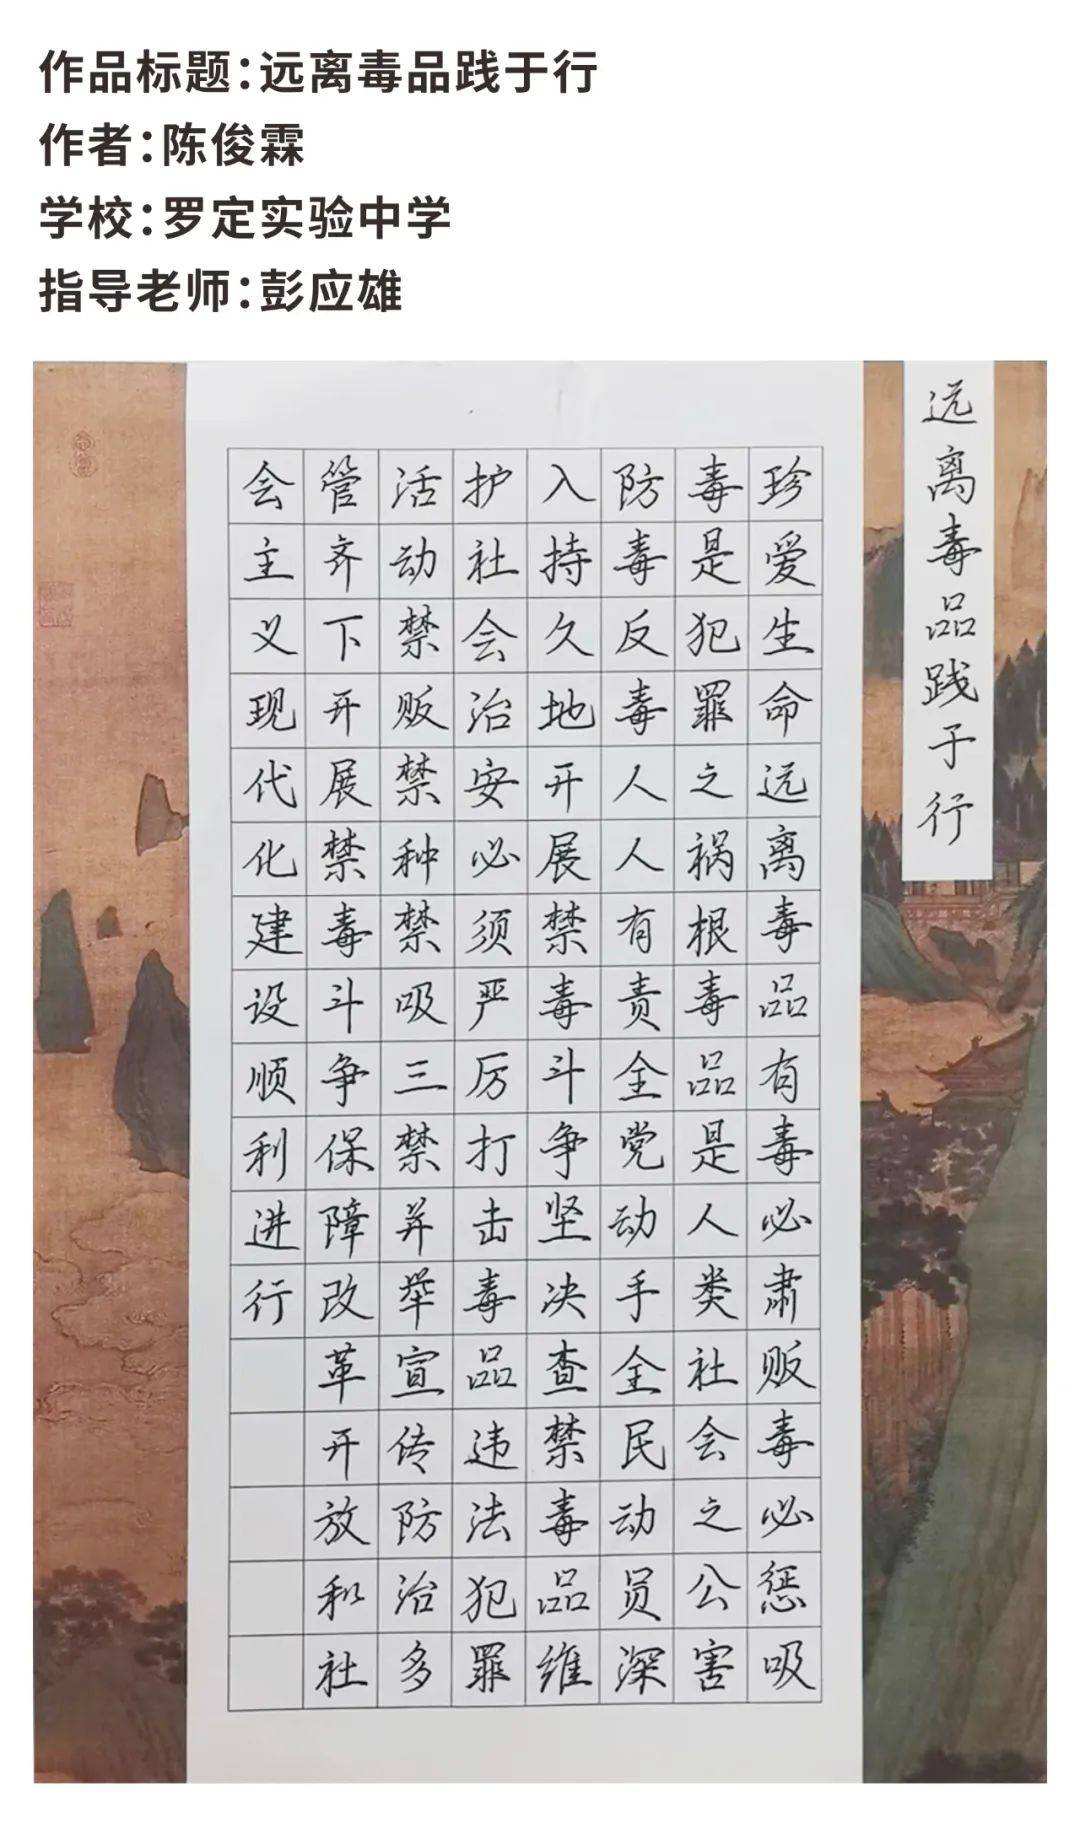 作品标题：远离毒品践于行
作者：陈俊霖
学校：罗定实验中学
指导老师：彭应雄
远离毒品践于行
珍爱生命远离毒品有毒必肃贩毒必惩吸
毒是犯罪之祸根毒品是人类社会之公害
防毒反毒人人有责全党动手全民动员深
入持久地开展禁毒斗争坚决查禁毒品维
护社会治安必须严厉打击毒品违法犯罪
活动禁贩禁种禁吸三禁并举宣传防治多
管齐下开展禁毒斗争保障改革开放和社
会主义现代化建设顺利进行